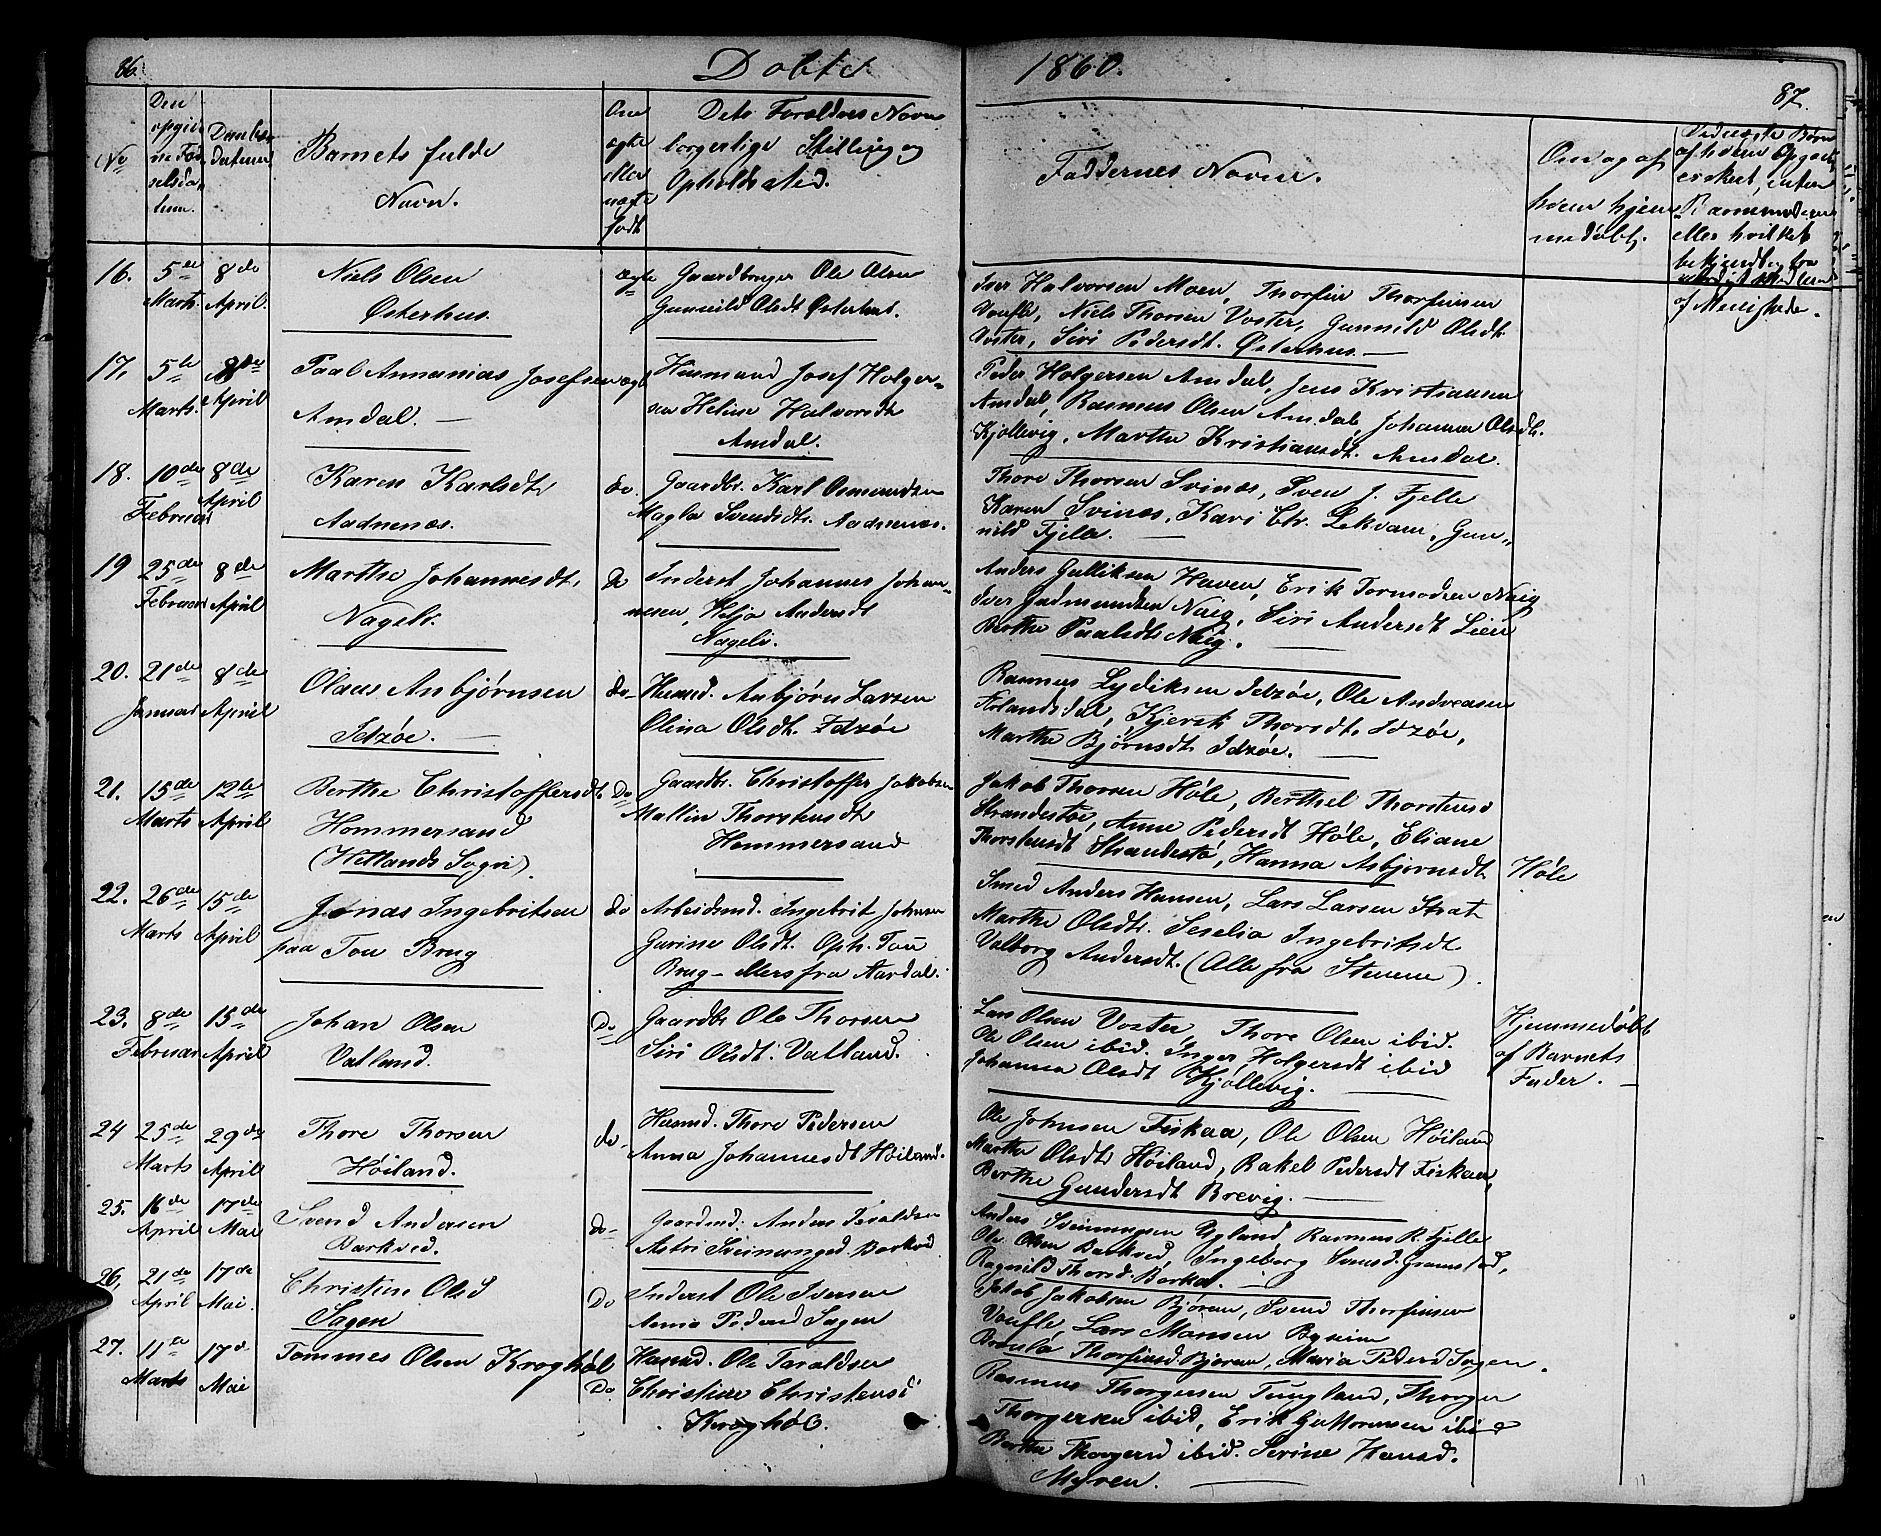 86.
Døbte
1860.
87.
No
Den opgivne Fødselsdatum.
Daabsdatum
Barnets fulde Navn.
Om ægte eller uægte født
Dets Forældres Navn borgerlige Stilling og Opholdssted.
Faddernes Navne.
Om og af hvem hjemmedøbt.
16.
5te Marts.
8de April.
Niels Olsen
Østerhus.
ægte
Gaardbruger Ole Olsen
Gunnild Olsdt Østerhus.
Iver Halvorsen Moen, Thorfin Thorfinsen
Voufle, Niels Thorsen Voster, Gunnild Olsdt.
Voster, Siri Pedersdt. Østerhus. —
17.
5te Marts.
8de April
Paal Annanias Josefsen
Amdal. —
ægt
Husmand Josef Holger-
sen Heline Halvorsdt
Amdal.
Peder Holgersen Amdal, Jens Kristiansen
Amdal, Rasmus Olsen Amdal, Johanna Olsdt.
Kjøllevig, Marthe Kristiansdt. Amdal.
18.
10de Februar
8de April
Karen Karlsdt.
Aadnenæs.
do.
Gaardbr. Karl Osmundsen
Magla Svendsdt. Aadnenæs.
Thore Thorsen Svinæs, Sven J. Fjelle
Karen Svinæs, Kari Chr. Lekvam, Gun-
nild Fjelle. —
19
25de Februar
8de April
Marthe Johannesdt.
Nageli.
Do
Inderst Johannes Johan-
nesen, Helja Andersdt
Nageli.
Anders Gulliksen Haven, Erik Tormodsen Næig
Iver Gudmundsen Næig, Siri Andersdt Lien
Berthe Paalsdt. Næig. —
20.
21de Januar
8de April
Olaus Asbjørnsen
Idzøe. —
do-
Husmd. Asbjørn Larsen
Olina Olsdt. Idzøe
Rasmus Lydiksen Idzøe, Ole Andreasen
Folandsdal, Kjersti Thorsdt. Idzøe,
Marthe Bjørnsdt. Idzøe. —
21.
15de Marts
12te April
Berthe Christoffersdt.
Hommersand
(Hetlands Sogn).
Do
Gaardbr. Christoffer Jakobsen
Mallin Thorstensdt
Hommersand
Jakob Thorsen Høle, Berthel Thorstens.
Strandestøe, Anne Pedersdt Høle, Eliane
Thorstensdt Strandestø, Hanna Asbjørnsdt.
Høle
22.
26de Marts
15de April
Jonas Ingebritsen
paa Tou Brug
do
Arbeidsmd. Ingebrit Johnsen
Gurine Olsdt. Oph. Tou
Brug - ellers fra Aardal.
Smed Anders Hansen, Lars Larsen Strat
Marthe Olsdt. Seselia Ingebritsdt.
Valborg Andersdt. (Alle fra Stenene).
23.
8de Februar
15de April
Johan Olsen
Vatland.
Do
Gaardbr Ole Thorsen
Siri Olsdt. Vatland.
Lars Olsen Voster Thore Olsen ibid.
Ole Olsen ibid. Inger Holgersdt ibid
Johanna Olsdt Kjøllevig. —
Hjemmedøbt
af Barnets
Fader. —
24
25de Marts
29de April
Thore Thorsen
Høiland.
do-
Husmd. Thore Pedersen
Anna Johannesdt Høiland.
Ole Johnsen Fiskaa, Ole Olsen Høiland
Marthe Olsdt. Høiland, Rakel Pedersdt Fiskaa,
Berthe Gundersdt Brevig. —
25.
16de April
17de Mai
Svend Andersen
Barkved.
do-
Gaardmd. Anders Taraldsen
Astri Sveinungsd. Barkved
Anders Sveinungsen Ygland, Rasmus R. Fjelle
Ole Olsen Barkved, Ingeborg Svensd. Gramstad,
Ragnild Thorsd. Barkv. —
26.
21de April
17de Mai.
Christine Olsd
Sagen
Do
Inderst Ole Iversen
Anna Pedersd Sagen
Jakob Jakobsen Bjøren, Svend Thorfinsen
Voufle Lars Monsen
Thorfinsd Bjøren, Maria Pedersd Sagen.
27.
11te Marts
17d Mai
Tommes Olsen Kroghøl
Do.
Husmd. Ole Taraldsen
Christine Christensd
Kroghøl.
Rasmus Thorgersen Tungland, Thorger
Thorgersen ibid, Erik Guttormsen ibid
Berthe Thorgersd ibid. Serine Hansd.
Myren. —